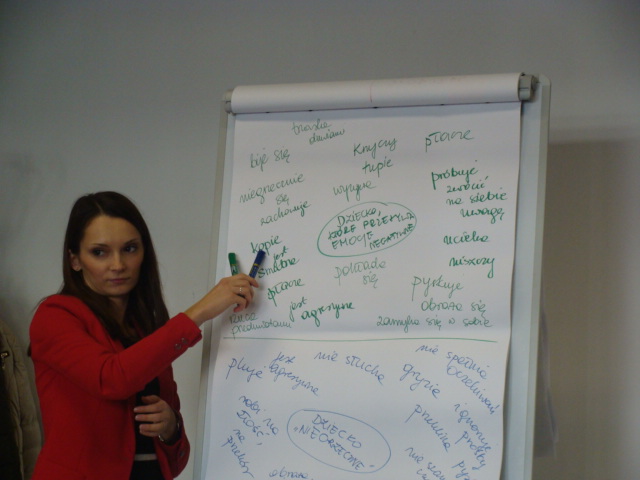 trzaska
drzwiami
bije się
krzyczy
tupie
płacze
niegrzecznie
się
zachowuje
wyzywa
próbuje
zwrócić
na siebie
uwagę
DZIECKO,
KTÓRE PRZEŻYWA
EMOCJE
NEGATYWNE
kopie
jest
smutne
ucieka
niszczy
pokłada
się
płacze
jest
agresywne
rzuca
przedmiotami
pyskuje
obraża się
zamyka się w sobie
pluje
jest
agresywne
nie słucha
nie spełnia
oczekiwań
gryzie
ignoruje
prośby
przeklina
robi na
złość,
na
przekór
DZIECKO
"NIEGRZECZNE"
obraża